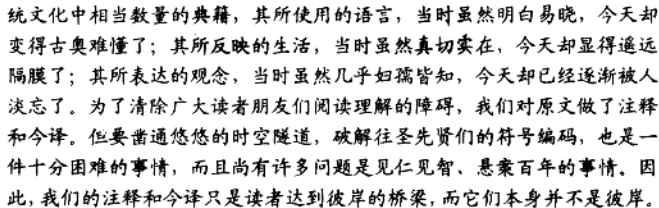 统文化中相当数量的典籍，其所使用的语言，当时虽然明白易晓，今天却
变得古奥难懂了；其所反映的生活，当时虽然真切实在，今天却显得遥远
隔膜了；其所表达的观念，当时虽然几乎妇孺皆知，今天却已经逐渐被人
淡忘了。为了清除广大读者朋友们阅读理解的障碍，我们对原文做了注释
和今译。但要凿通悠悠的时空隧道，破解往圣先贤们的符号编码，也是一
件十分困难的事情，而且尚有许多问题是见仁见智、悬案百年的事情。因
此，我们的注释和今译只是读者达到彼岸的桥梁，而它们本身并不是彼岸。